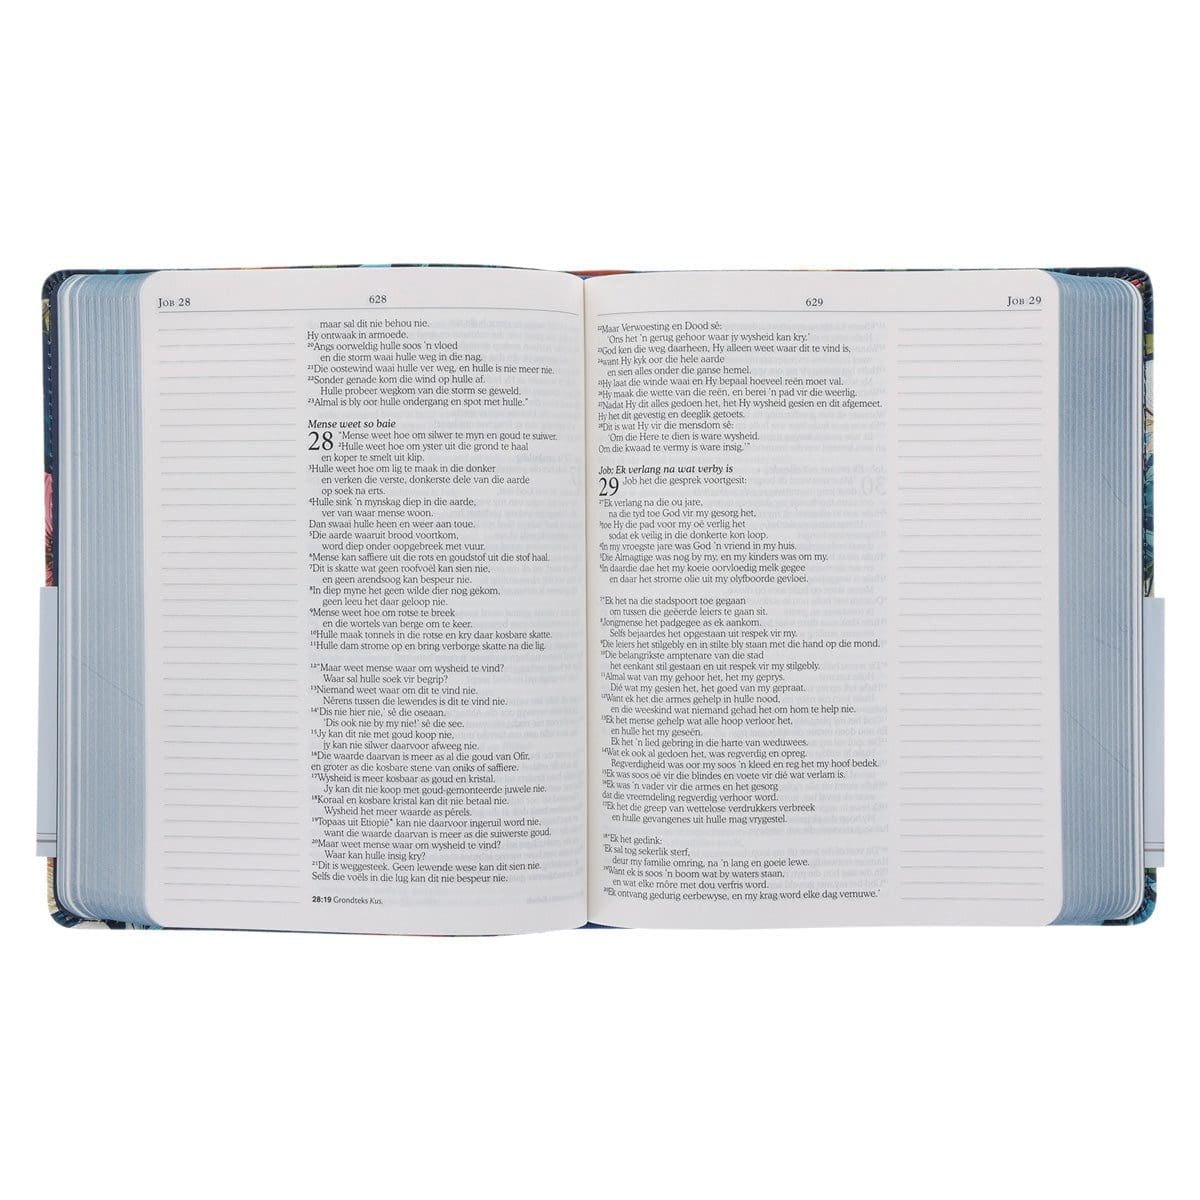 JOB 28
628
maar sal dit nie behou nie.
Hy ontwaak in armoede.
20Angs oorweldig hulle soos 'n vloed
en die storm waai hulle weg in die nag.
21Die oostewind waai hulle ver weg, en hulle is nie meer nie.
22Sonder genade kom die wind op hulle af.
Hulle probeer wegkom van die storm se geweld.
23Almal is bly oor hulle ondergang en spot met hulle."
Mense weet so baie
28 "Mense weet hoe om silwer te myn en goud te suiwer.
2Hulle weet hoe om yster uit die grond te haal
en koper te smelt uit klip.
3Hulle weet hoe om lig te maak in die donker
en verken die verste, donkerste dele van die aarde
op soek na erts.
4Hulle sink 'n mynskag diep in die aarde,
ver van waar mense woon.
Dan swaai hulle heen en weer aan toue.
5Die aarde waaruit brood voortkom,
word diep onder oopgebreek met vuur.
6Mense kan saffiere uit die rots en goudstof uit die stof haal.
7Dit is skatte wat geen roofvoël kan sien nie,
en geen arendsoog kan bespeur nie.
8In diep myne het geen wilde dier nog gekom,
geen leeu het daar geloop nie.
9Mense weet hoe om rotse te breek
en die wortels van berge om te keer.
10Hulle maak tonnels in die rotse en kry daar kosbare skatte.
11Hulle dam strome op en bring verborge skatte na die lig.
12"Maar weet mense waar om wysheid te vind?
Waar sal hulle soek vir begrip?
13Niemand weet waar om dit te vind nie.
Nêrens tussen die lewendes is dit te vind nie.
14'Dis nie hier nie,' sê die oseaan.
'Dis ook nie by my nie!' sê die see.
15Jy kan dit nie met goud koop nie,
jy kan nie silwer daarvoor afweeg nie.
16Die waarde daarvan is meer as al die goud van Ofir,
en groter as die kosbare stene van oniks of saffiere.
17Wysheid is meer kosbaar as goud en kristal.
Jy kan dit nie koop met goud-gemonteerde juwele nie.
18Koraal en kosbare kristal kan dit nie betaal nie.
Wysheid het meer waarde as pêrels.
19Topaas uit Etiopië* kan nie daarvoor ingeruil word nie,
want die waarde daarvan is meer as die suiwerste goud.
20Maar weet mense waar om wysheid te vind?
Waar kan hulle insig kry?
21Dit is weggesteek. Geen lewende wese kan dit sien nie.
Selfs die voëls in die lug kan dit nie bespeur nie.
28:19 Grondteks Kus.
629
JOB 29
22Maar Verwoesting en Dood sê:
'Ons het 'n gerug gehoor waar jy wysheid kan kry.'
23God ken die weg daarheen, Hy alleen weet waar dit te vind is,
24want Hy kyk oor die hele aarde
en sien alles onder die ganse hemel.
25Hy laat die winde waai en Hy bepaal hoeveel reën moet val.
26Hy maak die wette van die reën, en berei 'n pad vir die weerlig.
27Nadat Hy dit alles gedoen het, het Hy wysheid gesien en dit afgemeet.
Hy het dit gevestig en deeglik getoets.
28Dit is wat Hy vir die mensdom sê:
'Om die Here te dien is ware wysheid.
Om die kwaad te vermy is ware insig.'"
Job: Ek verlang na wat verby is
29 Job het die gesprek voortgesit:
2"Ek verlang na die ou jare,
na die tyd toe God vir my gesorg het,
3toe Hy die pad voor my oë verlig het
sodat ek veilig in die donkerte kon loop.
4In my vroegste jare was God 'n vriend in my huis.
5Die Almagtige was nog by my, en my kinders was om my.
6In daardie dae het my koeie oorvloedig melk gegee
en daar het strome olie uit my olyfboorde gevloei.
7"Ek het na die stadspoort toe gegaan
om tussen die geëerde leiers te gaan sit.
8Jongmense het padgegee as ek aankom.
Selfs bejaardes het opgestaan uit respek vir my.
9Die leiers het stilgebly en in stilte bly staan met die hand op die mond.
10Die belangrikste amptenare van die stad
het eenkant stil gestaan en uit respek vir my stilgebly.
11Almal wat van my gehoor het, het my geprys.
Dié wat my gesien het, het goed van my gepraat.
12Want ek het die armes gehelp in hulle nood,
en die weeskind wat niemand gehad het om hom te help nie.
13Ek het mense gehelp wat alle hoop verloor het,
en hulle het my geseën.
Ek het 'n lied gebring in die harte van weduwees.
14Wat ek ook al gedoen het, was regverdig en opreg.
Regverdigheid was oor my soos 'n kleed en reg het my hoof bedek.
15Ek was soos oë vir die blindes en voete vir dié wat verlam is.
16Ek was 'n vader vir die armes en het gesorg
dat die vreemdeling regverdig verhoor word.
17Ek het die greep van wettelose verdrukkers verbreek
en hulle gevangenes uit hulle mag vrygestel.
18"Ek het gedink:
'Ek sal tog sekerlik sterf,
deur my familie omring, na 'n lang en goeie lewe.
19Want ek is soos 'n boom wat by waters staan,
en wat elke môre met dou verfris word.
20Ek ontvang gedurig eerbewyse, en my krag word elke dag vernuwe.'